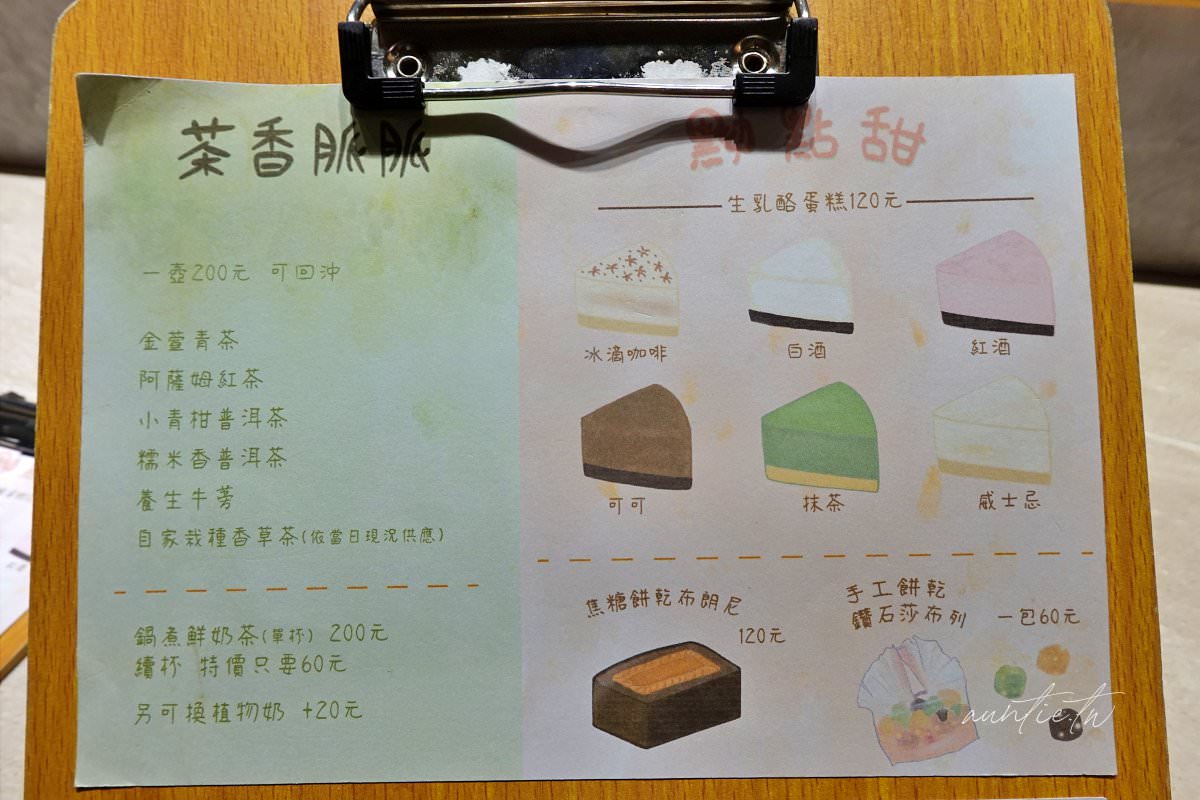 茶香脈脈
一壺200元 可回沖
金萱青茶
阿薩姆紅茶
小青柑普洱茶
糯米香普洱茶
養生牛蒡
自家栽種香草茶(依當日現況供應)
鍋煮鮮奶茶(單杯) 200元
續杯 特價只要60元
另可換植物奶 +20元
點點甜
生乳酪蛋糕120元
冰滴咖啡
白酒
紅酒
可可
抹茶
威士忌
焦糖餅乾布朗尼
120元
手工餅乾
鑽石莎布列 一包60元
auntie.tw